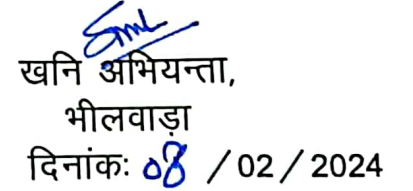 खनि अभियन्ता,
भीलवाड़ा
दिनांकः 08 / 02 / 2024